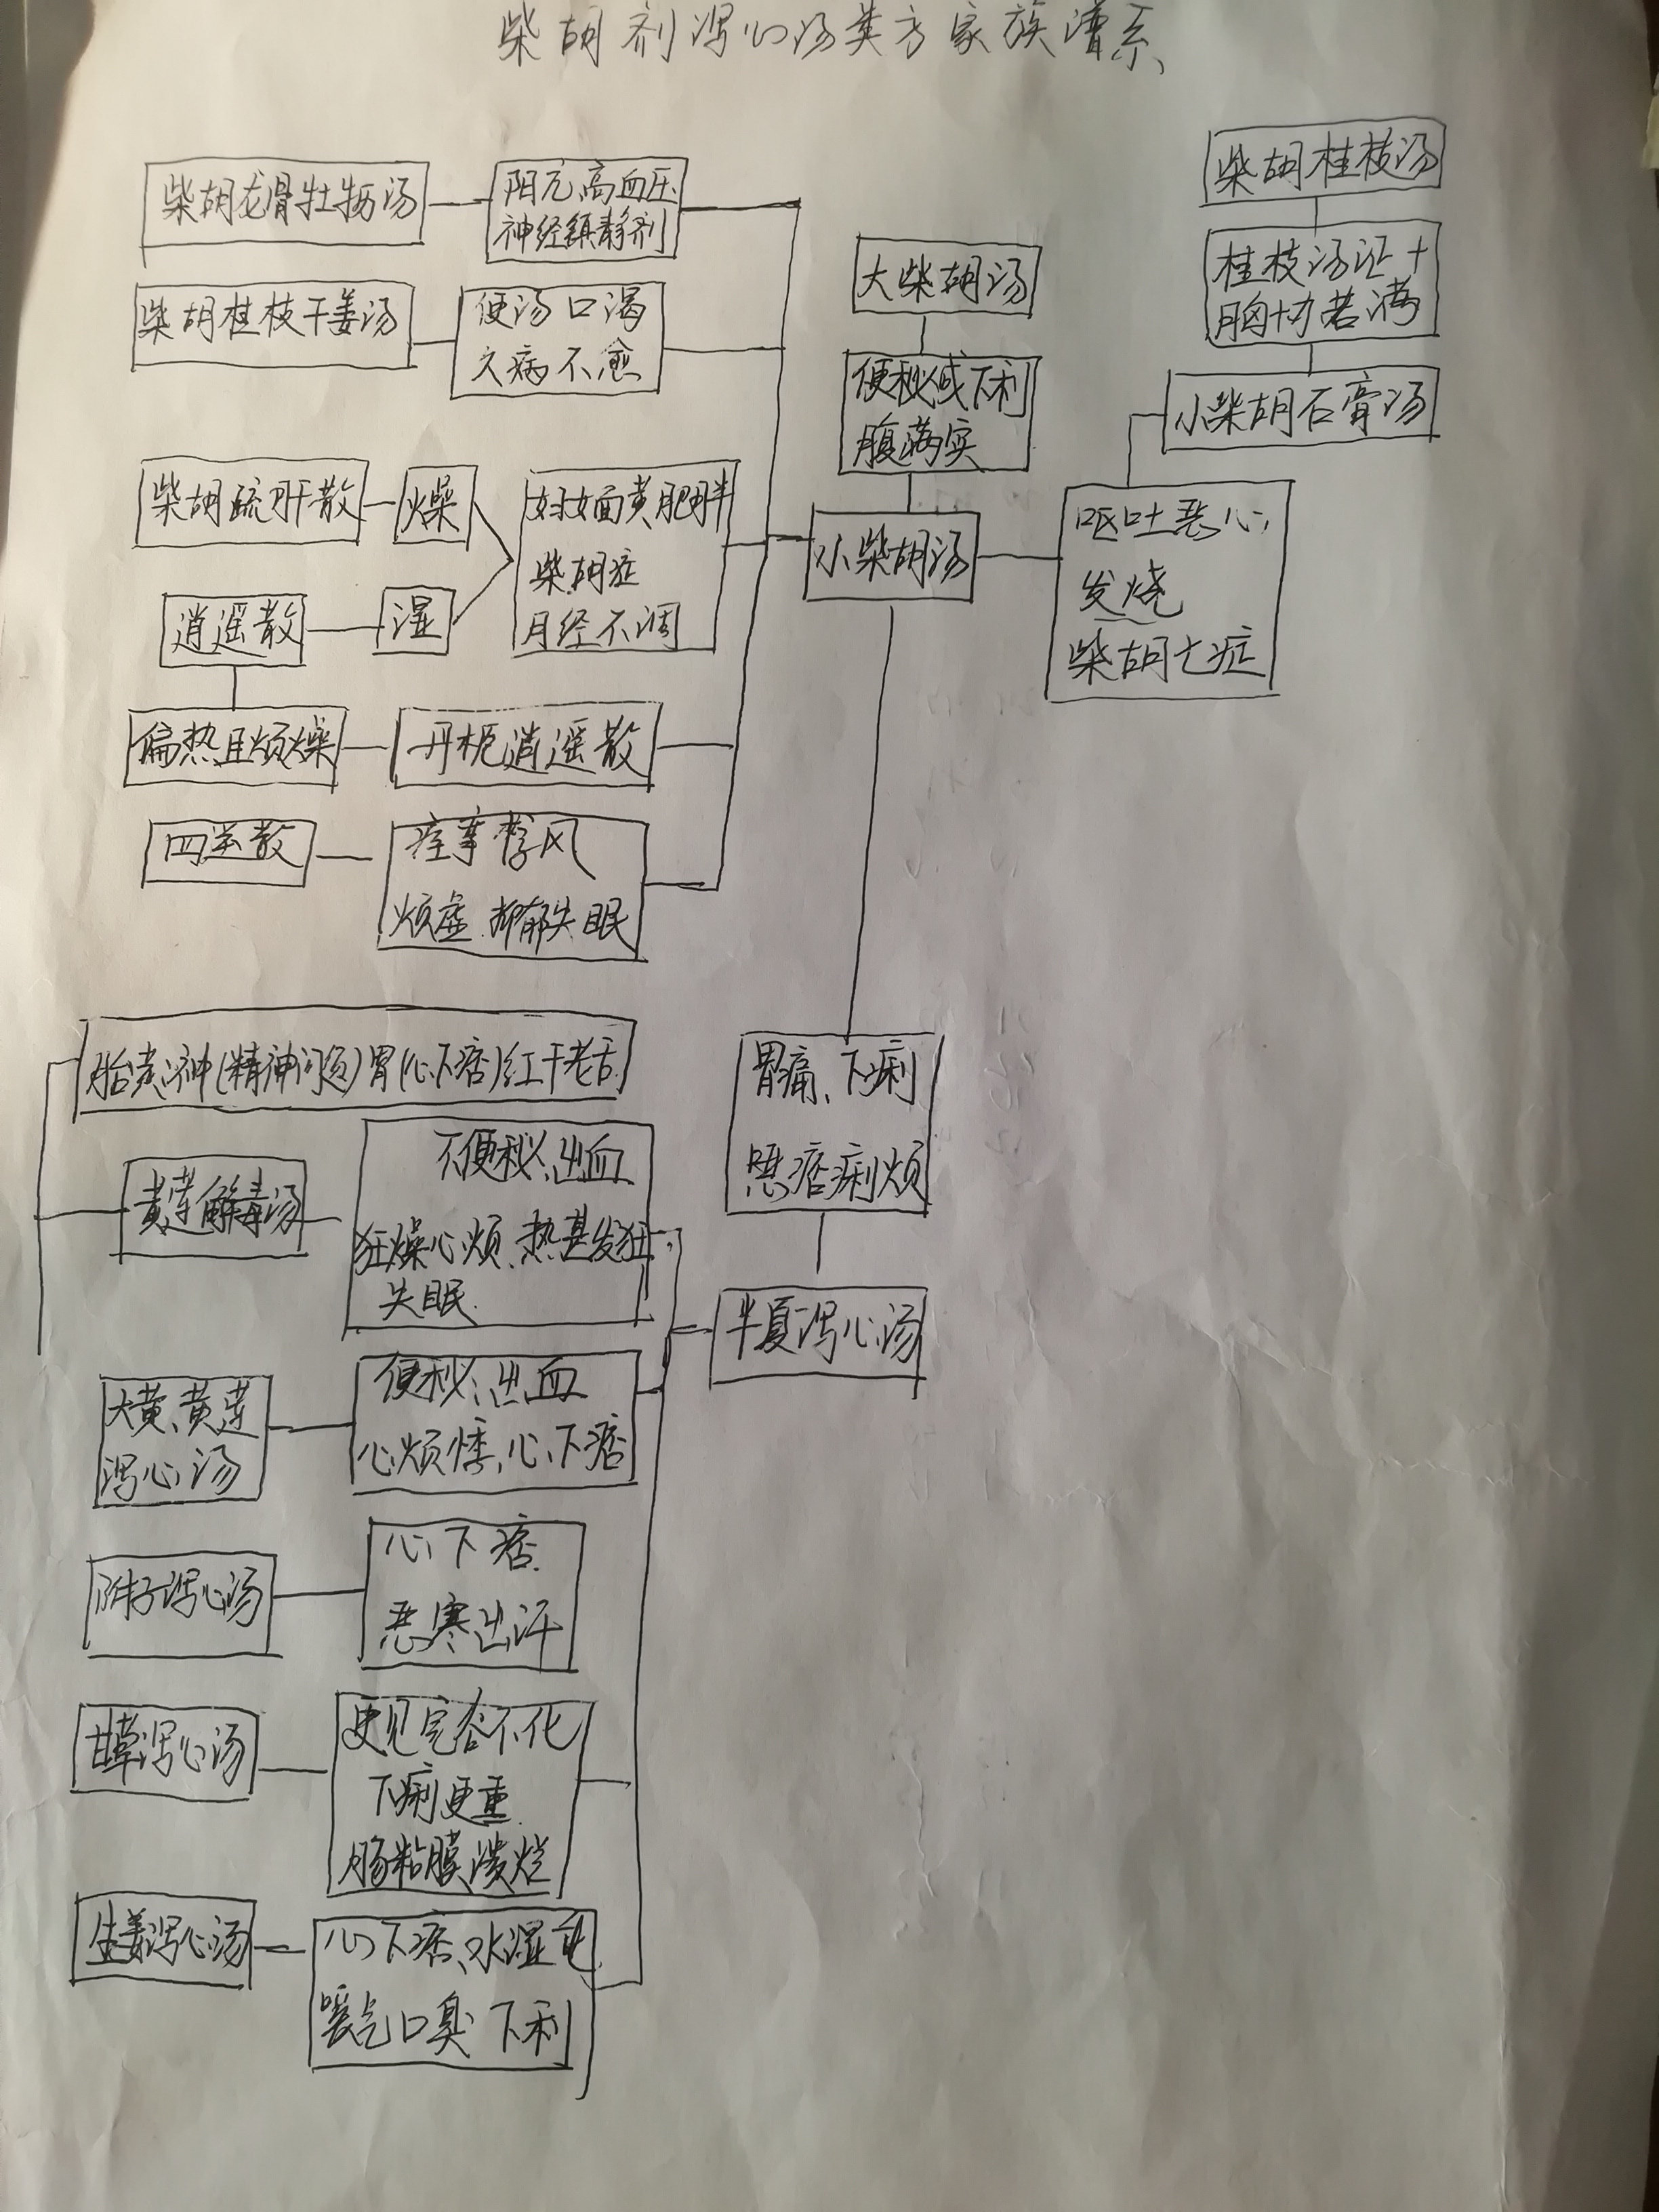 柴胡剂泻心汤类方家族谱系
柴胡桂枝汤
桂枝汤证+
胸协苦满
小柴胡石膏汤
呕吐恶心
发烧
柴胡七症
大柴胡汤
便秘或下利
腹满实
小柴胡汤
柴胡龙骨牡蛎汤
阳亢高血压
神经镇静剂
柴胡桂枝干姜汤
便汤口渴
久病不愈
柴胡疏肝散
燥
妇女面黄肥胖
柴胡症
月经不调
逍遥散
湿
偏热且烦燥
丹栀逍遥散
四逆散
痉挛
烦虚.抑郁失眠
(精神问题)胃(心下痞)红干老舌
黄莲解毒汤
不便秘、出血
狂燥心烦、热甚发狂
失眠
大黄、黄莲
泻心汤
便秘、出血
心烦悸、心下痞
附子泻心汤
心下痞.
恶寒出汗
甘草泻心汤
更见完谷不化
下痢更重
肠粘膜溃烂
生姜泻心汤
心下痞、水湿
嗳气口臭 下利
胃痛、下痢
痞痢烦
半夏泻心汤